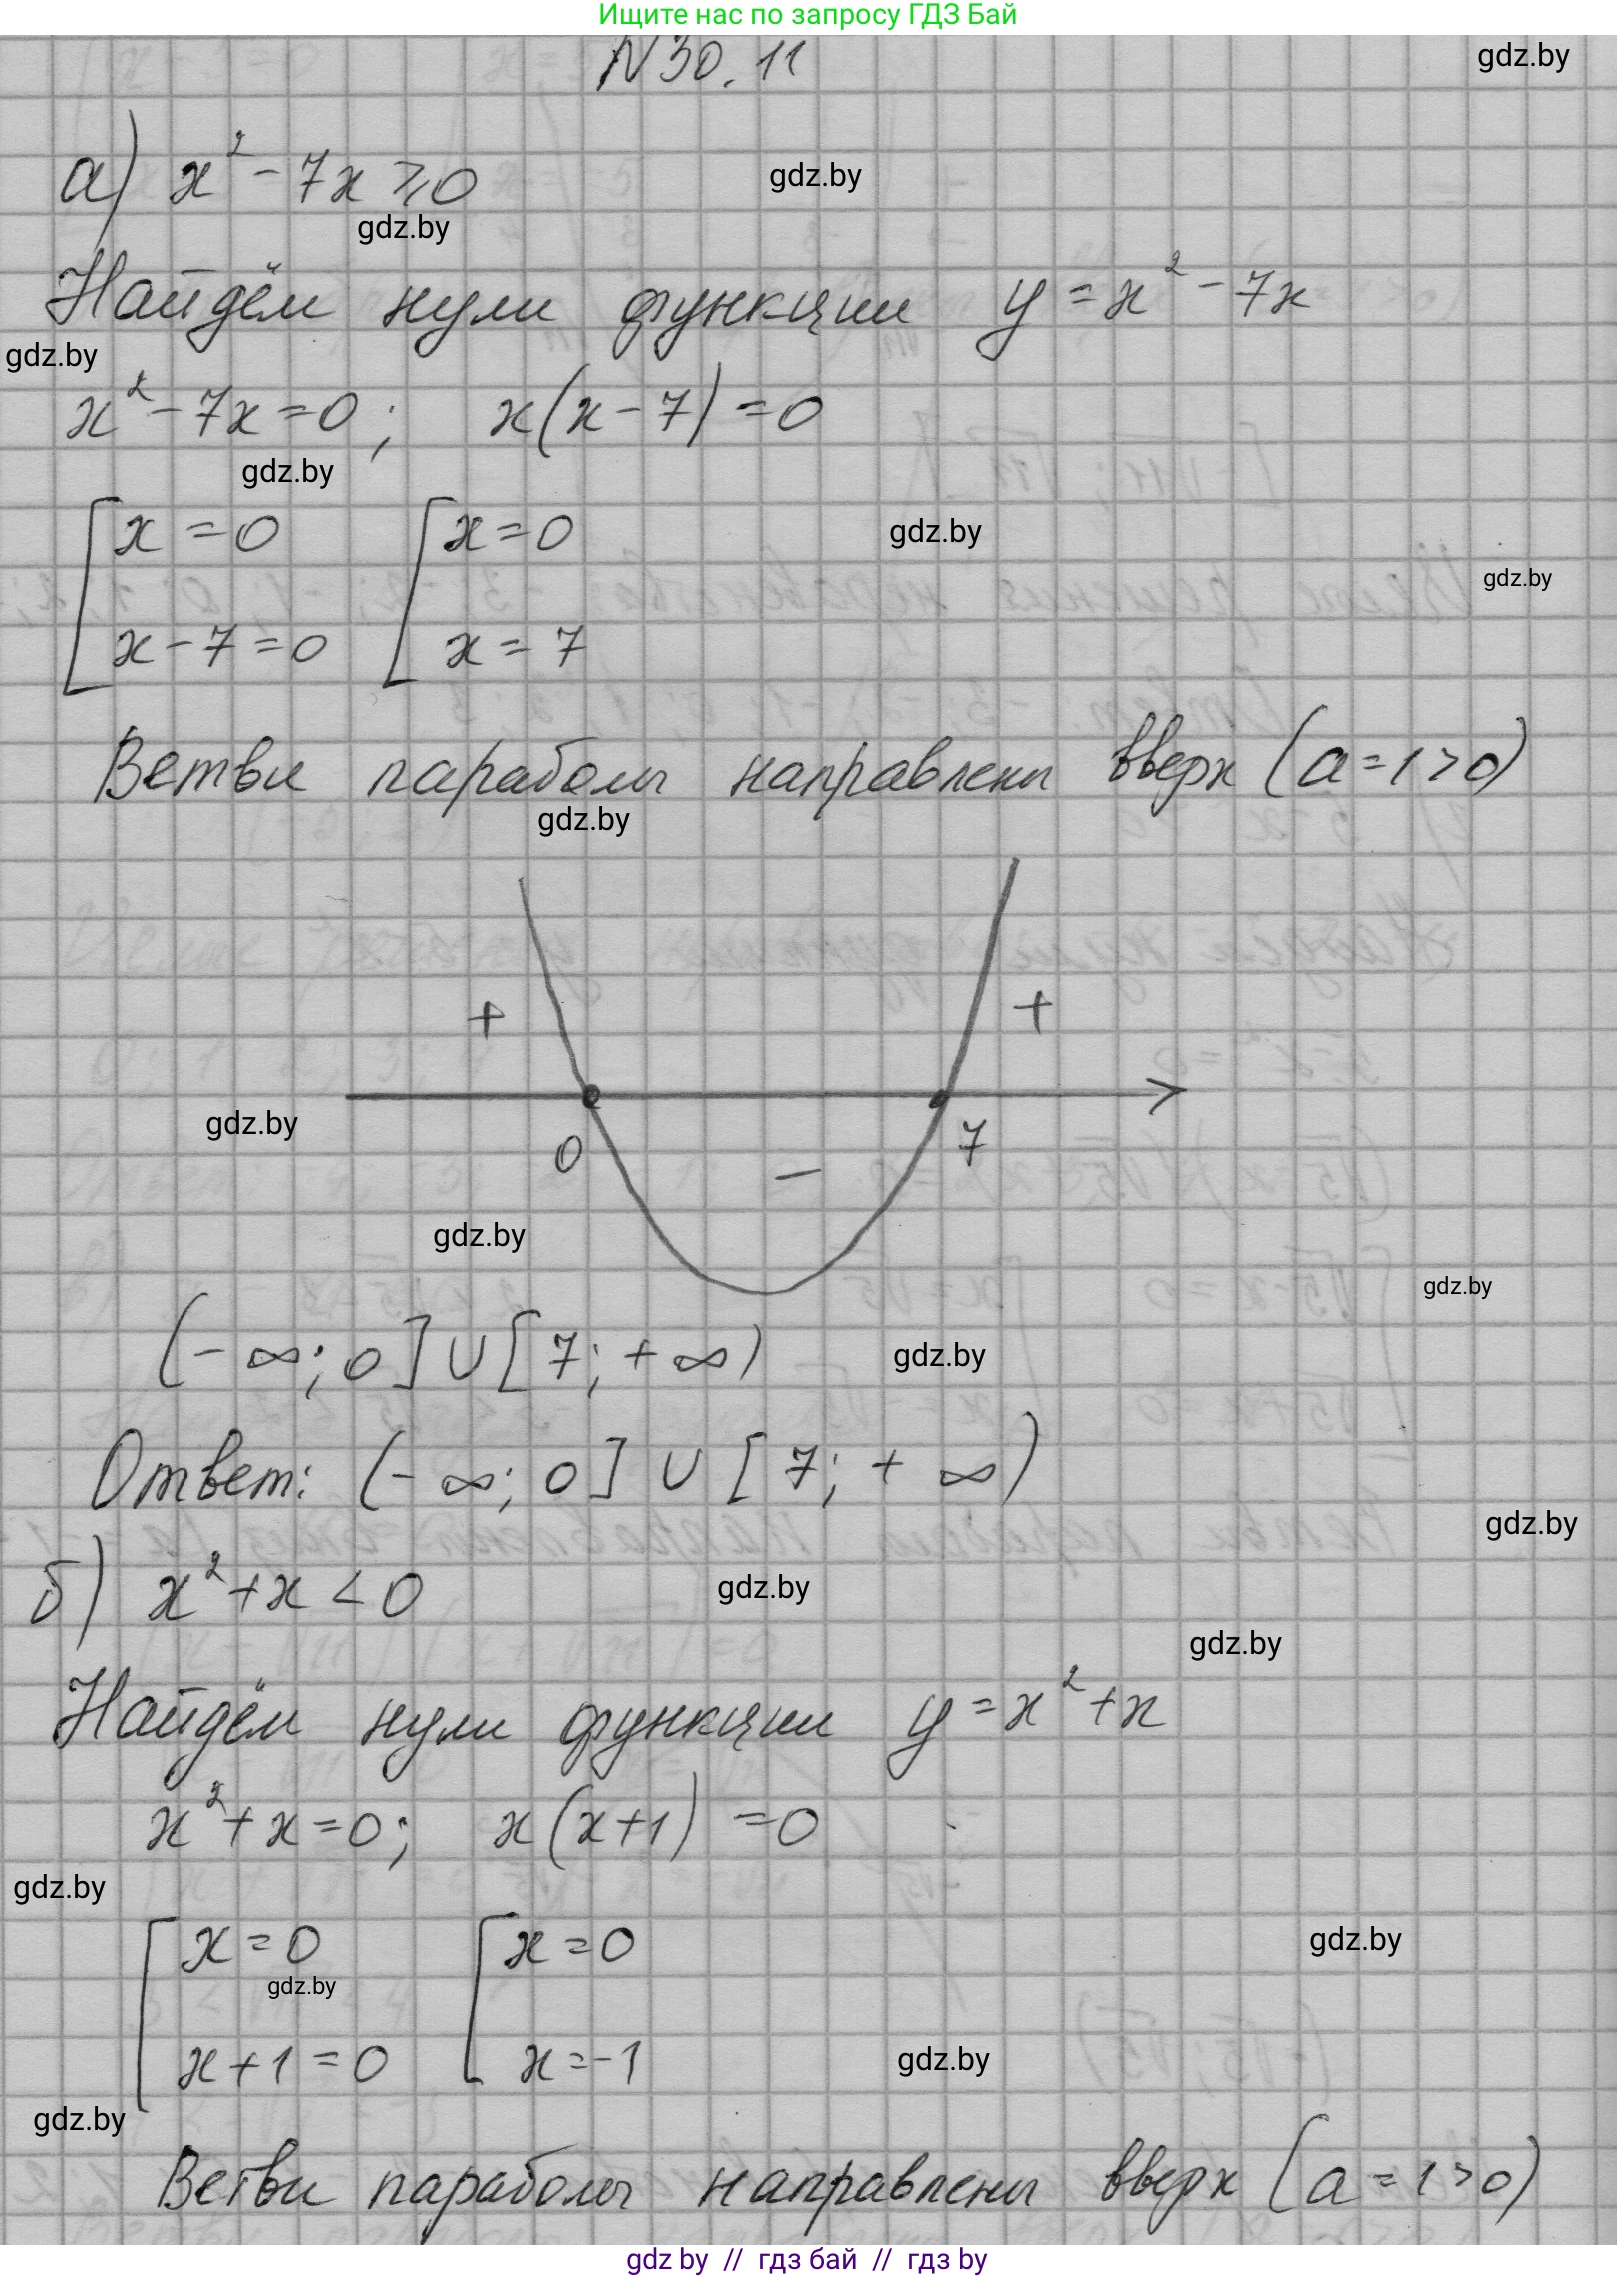 Ищите нас по запросу ГДЗ Бай
N30.11
gdz.by
а) x² - 7x ⩾ 0
gdz.by
gdz.by
Найдём нули функции y = x² - 7x
gdz.by
x² - 7x = 0; x(x - 7) = 0
gdz.by
[ x = 0 [ x = 0
gdz.by
gdz.by
x - 7 = 0 x = 7
Ветви параболы направлены вверх (a = 1 > 0)
gdz.by
+ +
gdz.by
0 7
−
gdz.by
gdz.by
(-∞; 0] ∪ [7; +∞)
gdz.by
Ответ: (-∞; 0] ∪ [7; +∞)
gdz.by
б) x² + x < 0
gdz.by
gdz.by
Найдём нули функции y = x² + x
x² + x = 0; x(x + 1) = 0
gdz.by
[ x = 0 [ x = 0
gdz.by
gdz.by
x + 1 = 0 x = -1
gdz.by
gdz.by
Ветви параболы направлены вверх (a = 1 > 0)
gdz by // гдз бай // гдз by